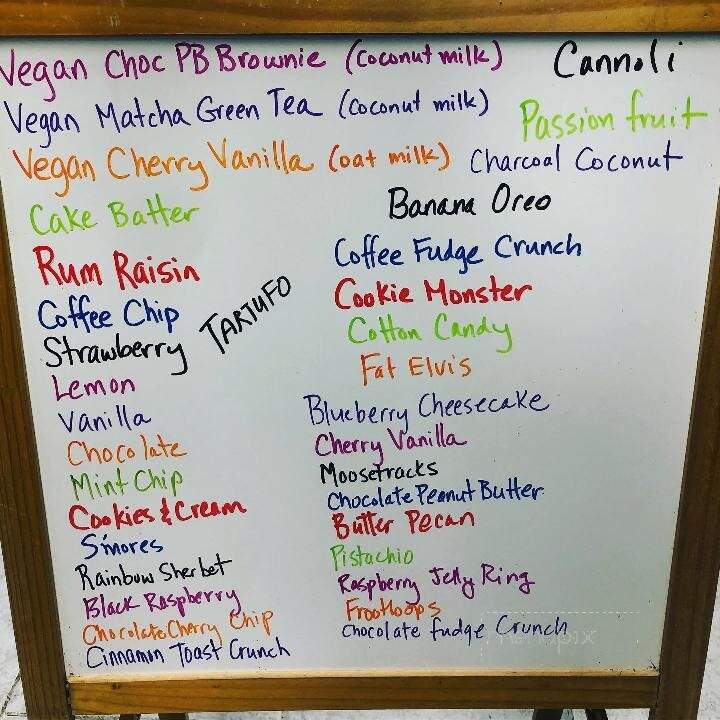 Vegan Choc PB Brownie (coconut milk)
Cannoli
Vegan Matcha Green Tea (coconut milk)
Passion fruit
Vegan Cherry Vanilla (oat milk)
Charcoal Coconut
Cake Batter
Banana Oreo
Rum Raisin
Coffee Fudge Crunch
Coffee Chip
TARTUFO
Cookie Monster
Strawberry
Cotton Candy
Lemon
Fat Elvis
Vanilla
Blueberry Cheesecake
Chocolate
Cherry Vanilla
Mint Chip
Moosetracks
Cookies & Cream
Chocolate Peanut Butter
S'mores
Butter Pecan
Rainbow Sherbet
Pistachio
Black Raspberry
Raspberry Jelly Ring
Chocolate Cherry Chip
Frootloops
Cinnamon Toast Crunch
Chocolate fudge Crunch